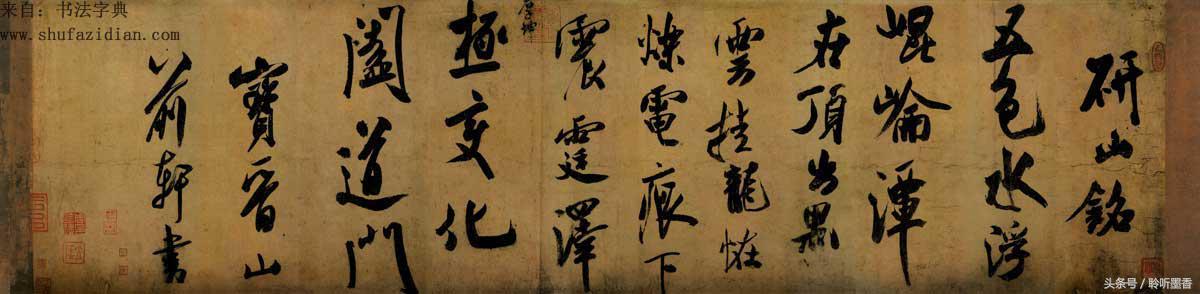 来自：书法字典
www.shufazidian.com
研山銘
五色水浮
崐崘潭
在頂出黑
雲挂龍恠
爍電痕下
震霆澤
厚坤
極变化
闔道門
寶晋山
前軒書
头条号 / 聆听墨香